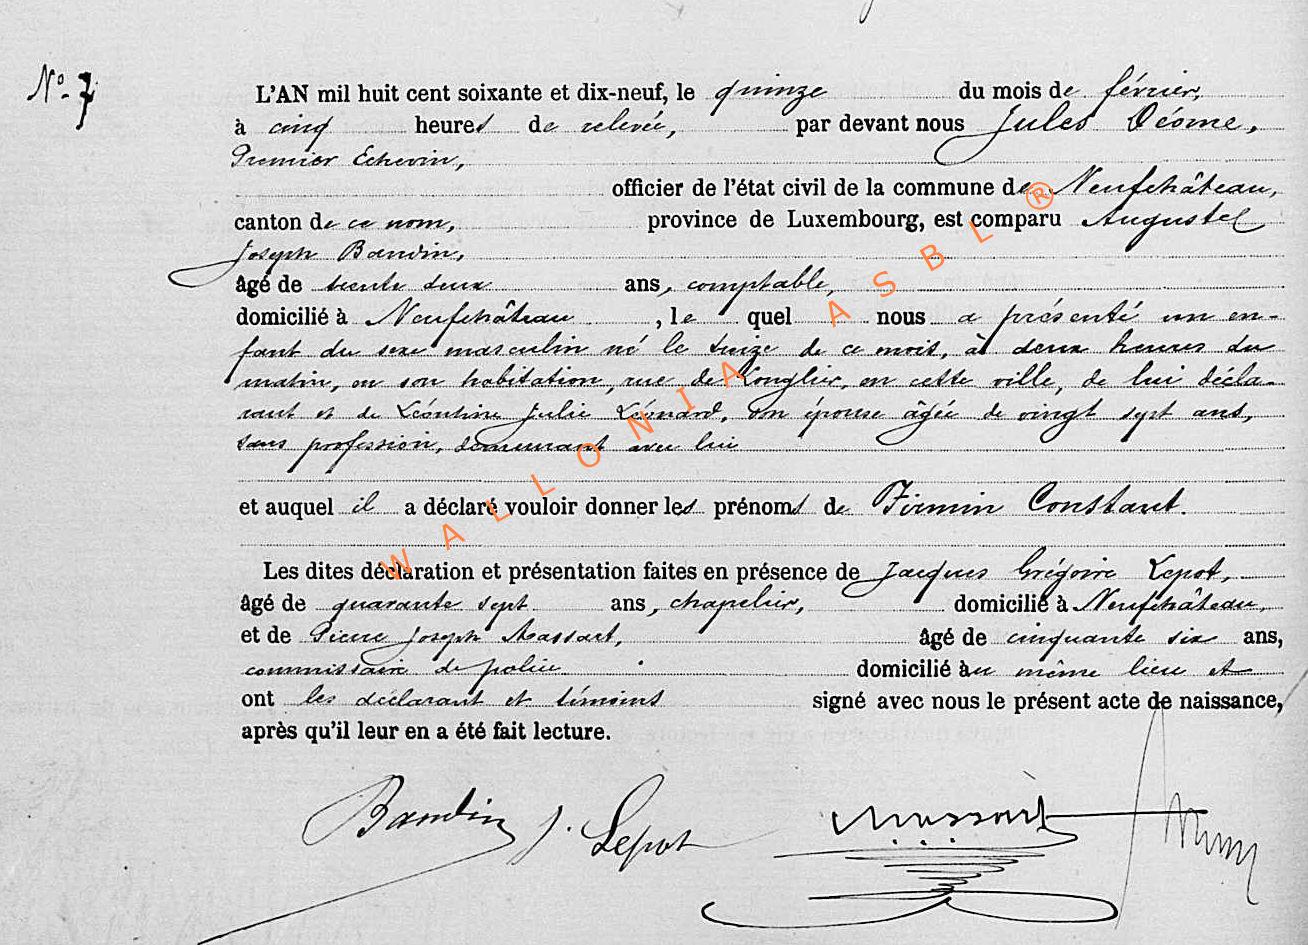 N° 7
L'AN mil huit cent soixante et dix-neuf, le quinze du mois de février,
à cinq heures de relevée, par devant nous Jules
Premier Echevin,
officier de l'état civil de la commune de Neufchâteau,
canton de ce nom, province de Luxembourg, est comparu Auguste
Joseph Baudin,
âgé de trente deux ans, comptable,
domicilié à Neufchâteau, le quel nous a présenté un en-
fant du sexe masculin né le treize de ce mois, à deux heures du
matin, en son habitation, rue de Longlier, en cette ville, de lui décla-
rant et de Léontine Julie Léonard, son épouse âgée de vingt sept ans,
sans profession, demeurant avec lui
et auquel il a déclaré vouloir donner les prénoms de Firmin Constant.
Les dites déclaration et présentation faites en présence de Jacques Grégoire Lepot,
âgé de quarante sept ans, chapelier, domicilié à Neufchâteau,
et de Pierre Joseph Massart, âgé de cinquante six ans,
commissaire de police domicilié au même lieu et
ont les déclarant et témoins signé avec nous le présent acte de naissance,
après qu'il leur en a été fait lecture.
Baudin J. Lepot Massart
WALLONIA ASBL ®